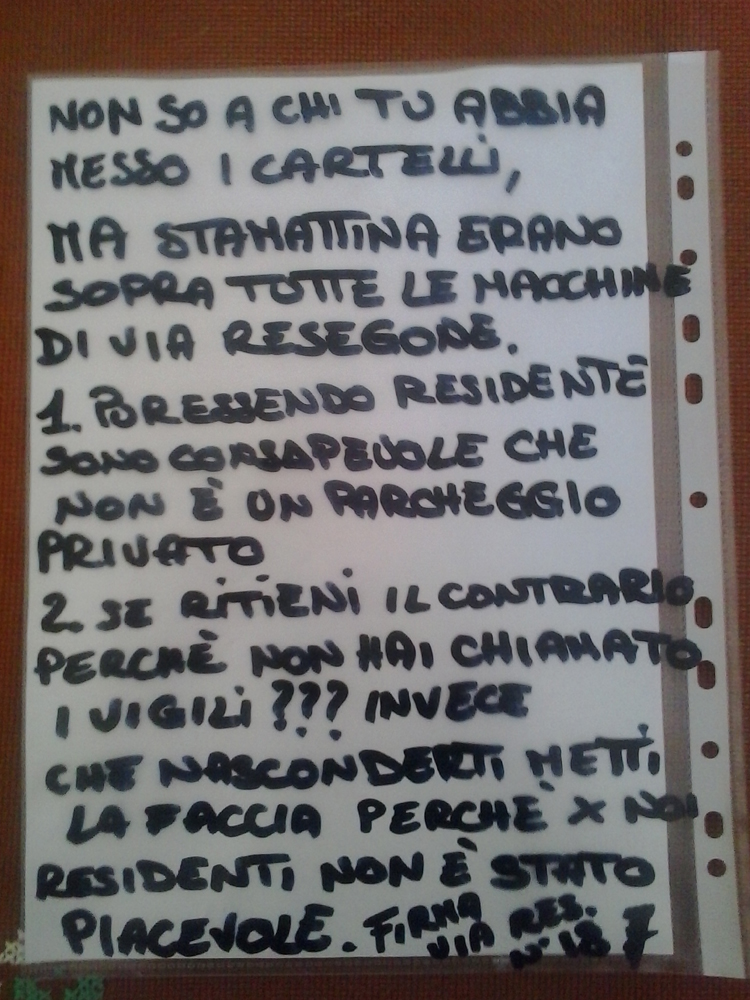 NON SO A CHI TU ABBIA
MESSO I CARTELLI,
MA STAMATTINA ERANO
SOPRA TUTTE LE MACCHINE
DI VIA RESEGONE.
1. PRESSENDO RESIDENTE
SONO CONSAPEVOLE CHE
NON È UN PARCHEGGIO
PRIVATO
2. SE RITIENI IL CONTRARIO
PERCHÈ NON HAI CHIAMATO
I VIGILI ??? INVECE
CHE NASCONDERTI METTI
LA FACCIA PERCHÈ X NOI
RESIDENTI NON È STATO
PIACEVOLE. FIRMA
VIA RES.
N° 18